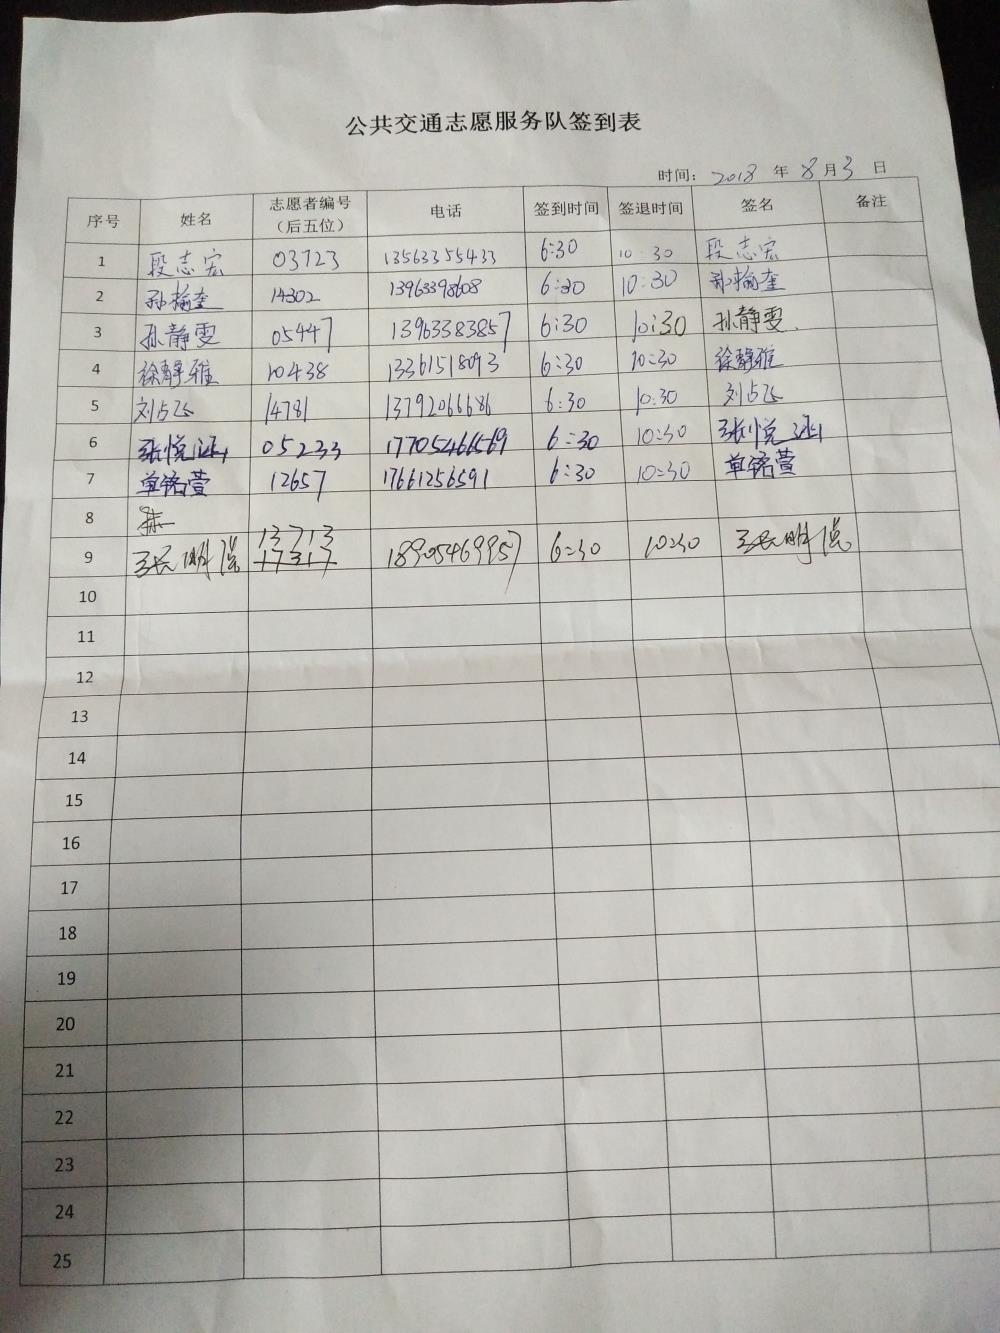 公共交通志愿服务队签到表
时间: 2018 年 8 月 3 日
序号 姓名 志愿者编号（后五位） 电话 签到时间 签退时间 签名 备注
1 段志宏 03723 13563355433 6:30 10:30 段志宏
2 孙揄奎 14302 13963398608 6:30 10:30 孙揄奎
3 孙静雯 05447 13963383857 6:30 10:30 孙静雯
4 徐静雅 10438 13361518093 6:30 10:30 徐静雅
5 刘占飞 14781 13792066686 6:30 10:30 刘占飞
6 张悦 05233 17705466569 6:30 10:30 张悦
7 单铭萱 12657 17661256591 6:30 10:30 单铭萱
8
13713
9 张明 17317 18905469957 6:30 10:30 张明
10
11
12
13
14
15
16
17
18
19
20
21
22
23
24
25